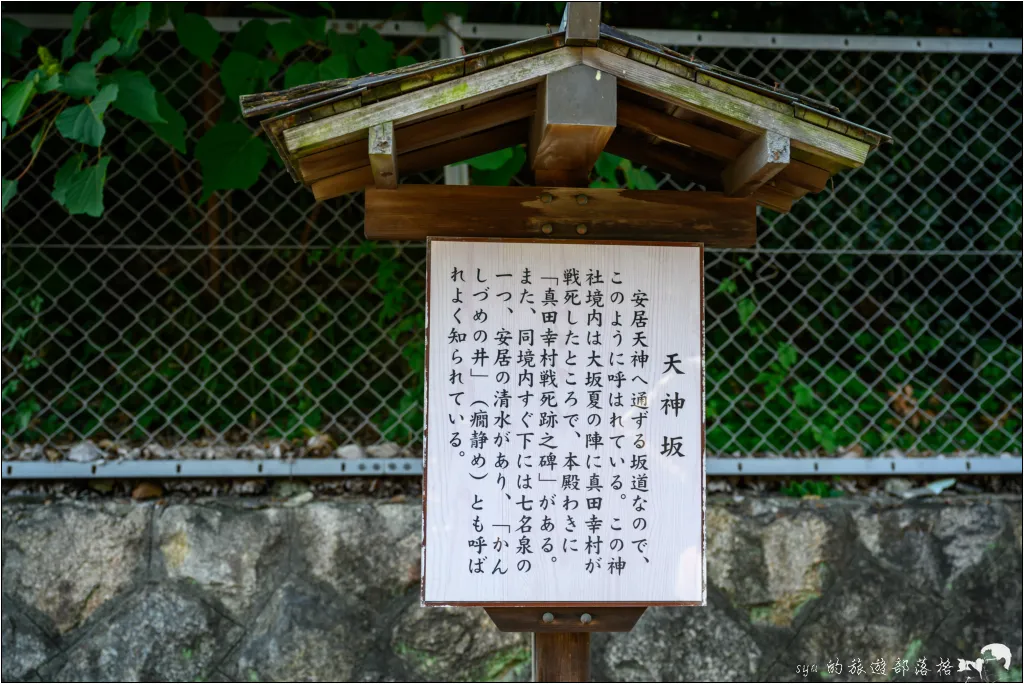 天神坂
安居天神へ通ずる坂道なので、
このように呼ばれている。この神
社境内は大坂夏の陣に真田幸村が
戦死したところで、本殿わきに
「真田幸村戦死跡之碑」がある。
また、同境内すぐ下には七名泉の
一つ、安居の清水があり、「かん
しづめの井」（癇静め）とも呼ば
れよく知られている。
sya 的旅遊部落格